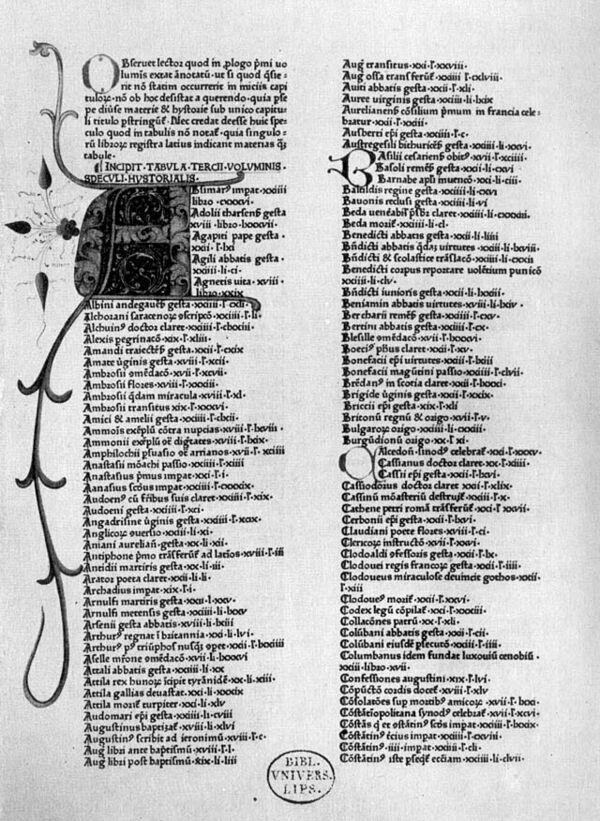 Obseruet lector quod in ꝓlogo pͥmi uo
lumīs extat ānotatū·ut si quid
rit nō statim occurrerit in iniciis capi
nō ob hoc desistat a querendo·quia
diūse materie & hystorie sub unico capitu
li titulo ꝑstringunt᷑·Nec credat deesse huic spe
culo quod in tabulis nō notat᷑·quia singulo
rū registra latius indicant materias
tabule·
INCIPIT·TABVLA·TERCII·VOLVMINIS·
SPECVLI·HYSTORIALIS·
impat·xxiiii
libro·cxxxvi·
Adolfi gesta
xviii·libro·lxxxvii·
Agapiti pape gesta·
xxi·ſ·lxi
Agili abbatis gesta·
xxiii·li·ci·
Agnetis uita·xviii
libro·xxix
Albini gesta·xxiiii·ſ·
Alchorani saracenoꝝ ·xxiiii·ſ·li·
Alchuinꝰ doctor claret·xxiiii·ſ·
Alexis pegrinacō·xix·ſ·xliii·
Amandi gesta·xxii·ſ·cxix
Amate ūginis gesta·xvii·ſ·
Ambrosii ·xvii·ſ·xcvii·
Ambrosii flores·xviii·ſ·xxxiii·
Ambrosii qͥdam miracula·xviii·ſ·xl·
Ambrosii transitus·xix·ſ·xxxvi·
Amici & amelii gesta·xxiiii·ſ·
Ammōis cōtra nupcias·xviii·ſ·lxviii·
Ammonii ·xviii·ſ·lxix·
Amphilochii arrianos·xvii·ſ·xciiii
Anastasii mōachi passio·xxiiii·ſ·xiiii
Anastasius pͥmus impat·xxi·ſ·i·
Anastasius scdus impat·xxiiii·ſ·cxxxix·
Audoenꝰ cū fribus suis claret·xxiiii·ſ·xix·
Audoeni gesta·xxiiii·ſ·xci·
Angadrisme ūginis gesta·xxiiii·ſ·xcix·
Angliꝝ ·xxiii·li·xi·
Aniani aurelian̄·gesta·xx·li·xi·
Antiphone pͥmo ad latīos·xviii·ſ·iiii
Antidii martiris gesta·xx·li·iii·
Aratoꝝ poeta claret·xxii·li·li·
Archadius impat·xix·ſ·i·
Arnulfi martiris gesta·xxii·l·xxv·
Arnulfi metensis gesta·xxiiii·li·lxxv·
Arsenii gesta abbatis·xviii·li·lxiii
Arthurꝰ regnat ī britannia·xxi·li·lvi·
Arthurꝰ ꝑ triūphos ·xxi·li·lxxiiii
Aselle ·xvii·li·lxxxvi·
Attali abbatis gesta·xxiiii·li·ix·
Attila rex hunoꝝ īcipit tyrānidē·xx·li·xiii·
Attila gallias deuastat·xxi·li·xxxix
Attila turpiter·xxi·li·xlv·
Audomari epi gesta·xxiiii·li·cviii
Augustinus baptizat᷑·xviii·li·xlvi·
Augustinꝰ scribit ad ieronimū·xviii·ſ·c·
Augꝰ libri ante baptismū·xviii·ſ·l·
Augꝰ libri post baptismū·xix·li·liii
Augꝰ transitus·xxi·ſ·xxviii·
Augꝰ ossa ·xxiiii·ſ·cxlviii·
Auiti abbatis gesta·xxii·ſ·xli·
Auree uirginis gesta·xxiiii·li·lxix
Aurelianen̄ cōsilium pͥmum in francia cele·
bratur·xxii·ſ·xxiiii·
Ausberti epi gesta·xxiiii·ſ·c·
Austregesili bituricen̄ gesta·xxiiii·li·xxvi·
Basilii cesarien̄ obitꝰ·xvii·ſ·xciiii·
Basoli remen̄ gesta·xxii·li·cxvi
Barnabe apli inuencō·xxi·li·ciii·
Batildis regine gesta·xxiiii·li·cxvi
Bauonis reclusi gesta·xxiiii·li·vi
Beda uenerabiꝉ claret·xxiiii·li·
Beda ·xxiiii·li·cl·
Benedicti abbatis gesta·xxii·li·liiii·
Bn̄dicti abbatis uirtutes·xxiiii·li·lxviii·
Bn̄dicti & scolastice trāslacō·xxiiii·li·cxxii
Benedicti corpus reportare uolētium punicō
xxiiii·li·clv·
Bn̄dicti iunioris gesta·xxii·li·lxxii·
Beniamin abbatis uirtutes·xviii·li·lxiv·
Bercharii remen̄ gesta·xxiiii·ſ·cxv·
Bertini abbatis gesta·xxiiii·ſ·cx·
Blesille ·xvii·ſ·lxxxvi·
Boeciꝰ claret·xxii·ſ·xv·
Bonefacii epi uirtutes·xxii·ſ·lxiii
Bonefacii magūtini passio·xxiiii·ſ·clvii
Brēdanꝰ in scotia claret·xxii·ſ·lxxxi·
Brigide ūginis gesta·xxii·ſ·xxix·
Briccii epi gesta·xix·ſ·xli
Britonū regnū & origo·xvii·ſ·v·
Bulgaroꝝ origo·xxiiii·li·cxxiii·
Burgūdionū origo·xx·ſ·xi·
Calcedon̄·sinodꝰ celebrat᷑·xxi·ſ·xxxv·
Cassianus doctor claret·xx·ſ·xiiii·
Cassii epi gesta·xxii·ſ·lxvi·
Cassiodorus doctor claret·xxii·ſ·xlix·
Cassinū mōasteriū destruit᷑·xxiiii·ſ·x·
Cathene petri romā ·xxi·ſ·xxvii·
Cerbonii epi gesta·xxii·ſ·lxvi·
Claudiani poete flores·xviii·ſ·ci·
Clericoꝝ instructō·xvii·ſ·xxvi·
Clodoaldi gesta·xxii·ſ·lx·
Clodouei regis francoꝝ gesta·xxii·ſ·iiii·
Clodoueus miraculose deuincit gothos·xxii·
ſ·xiii
Clodoueꝰ ·xxii·ſ·xxvi·
Codex legū cōpilat᷑·xxii·ſ·xxxiii·
Collacōnes patrū·xx·ſ·xli·
Colūbani abbatis gesta·xxii·ſ·cii·
Colūbani eiusdē ꝑsecutō·xxiiii·ſ·iiii·
Columbanus idem fundat luxouiū cenobiū·
xxiii·libro·xvii·
Confessiones augustini·xix·ſ·lvi·
Cōpūctō cordis docet᷑·xviii·ſ·xlv·
Cōsolatōes sup mortibꝰ amicoꝝ·xvii·ſ·lxxi·
Cōstātīopolitana synodꝰ celebrat᷑·xvii·ſ·xcvi·
Cōstātinꝰ impat·xxiiii·ſ·lxxix·
Cōstātinꝰ impat·xxiiii·ſ·cxviii·
Cōstātinꝰ·iiii·impat·xxiiii·ſ·cli·
Cōstātinꝰ iste eccliam·xxiiii·li·clvii·
BIBL.
VNIVERS.
LIPS.